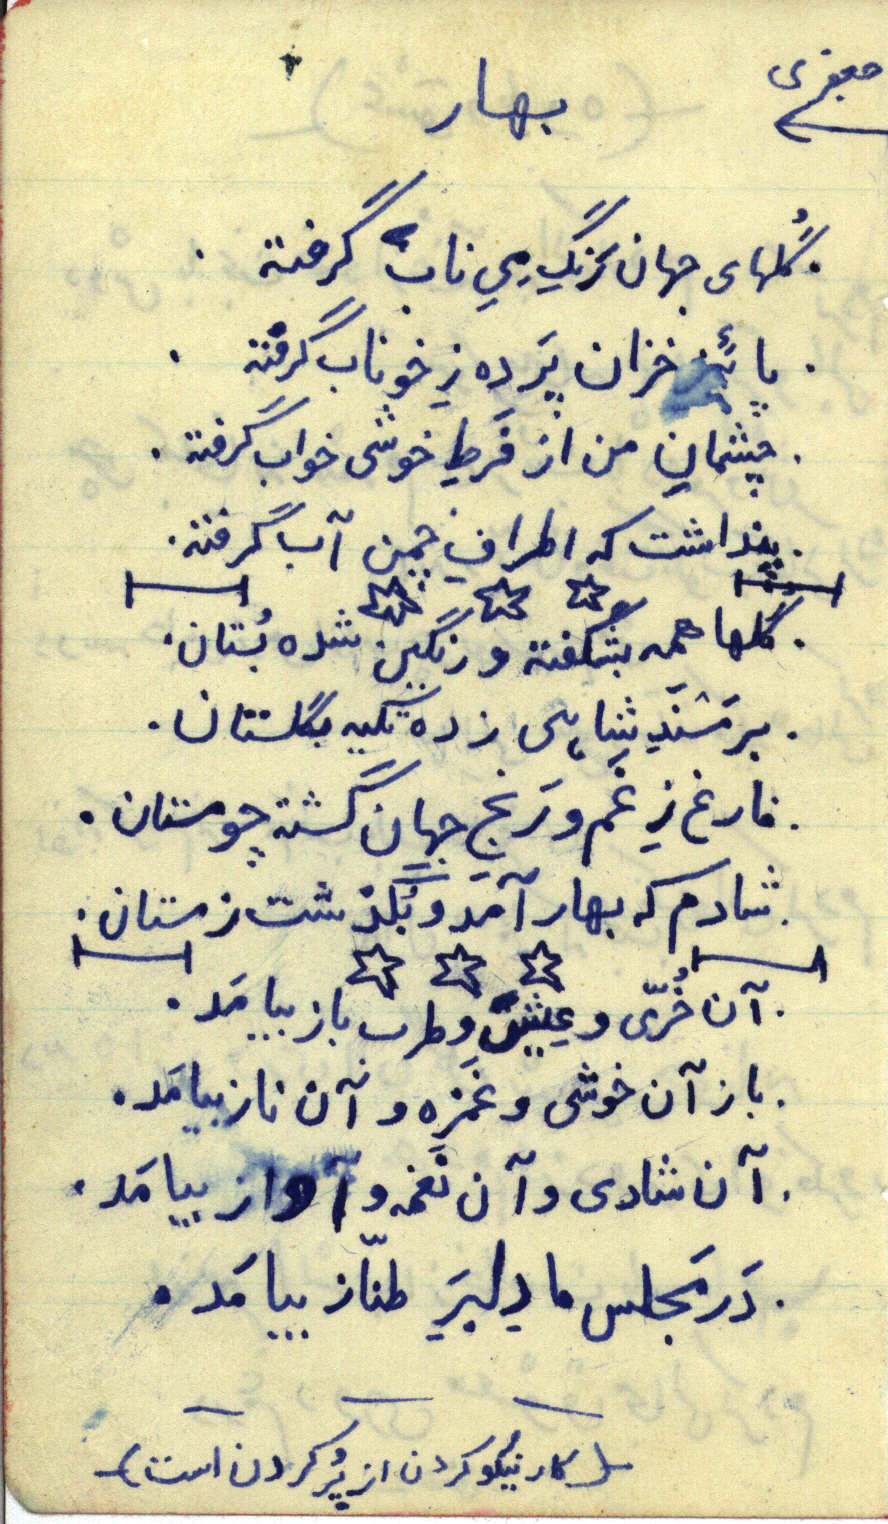 جعفری
بهار
گُلهای جهان رنگِ میِ ناب گرفته
پائیز خزان پَرده زِ خوناب گرفته
چشمانِ من از فَرطِ خوشی خواب گرفته
پنداشت که اطرافِ چمن آب گرفته
گلها همه بشگفته و رنگین شده بُستان
بر مَسْنَدِ شاهی زده تکیه بگلستان
فارغ زِ غَم و رَنج جهان گشته چو مستان
شادم که بهار آمَد و بُگذشت زمستان
آن خُرّمی و عیش و طرب باز بیامَد
باز آن خوشی و غمزه و آن ناز بیامَد
آن شادی و آن نَغمه و آواز بیامَد
دَر مَجلس ما دِلبَرِ طنّاز بیامَد
(کار نیکو کردن از پُر کردن است)